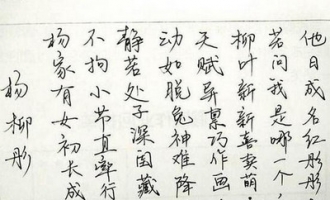 杨柳彤
杨家有女初长成
不拘小节直率行
静若处子深闺藏
动如脱兔神难降
天赋异禀巧作画
柳叶新新喜卖萌,
若问我是哪一个,
他日成名红彤彤